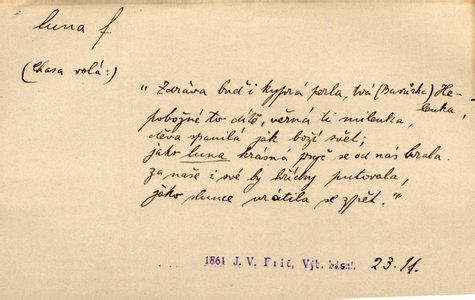 luna f.
(Chasa volá:)
"Zdráva buď i kyprá perla, tvá (Barůčka) He-
lenka,
pobožné to dítě, věrná ti milenka,
děva spanilá jak boží svět;
jako luna krásná pryč se od nás brala.
za naše i své by hříchy putovala,
jako slunce vrátila se zpět."
1861 J. V. Frič, Výb. básní. 23.11.